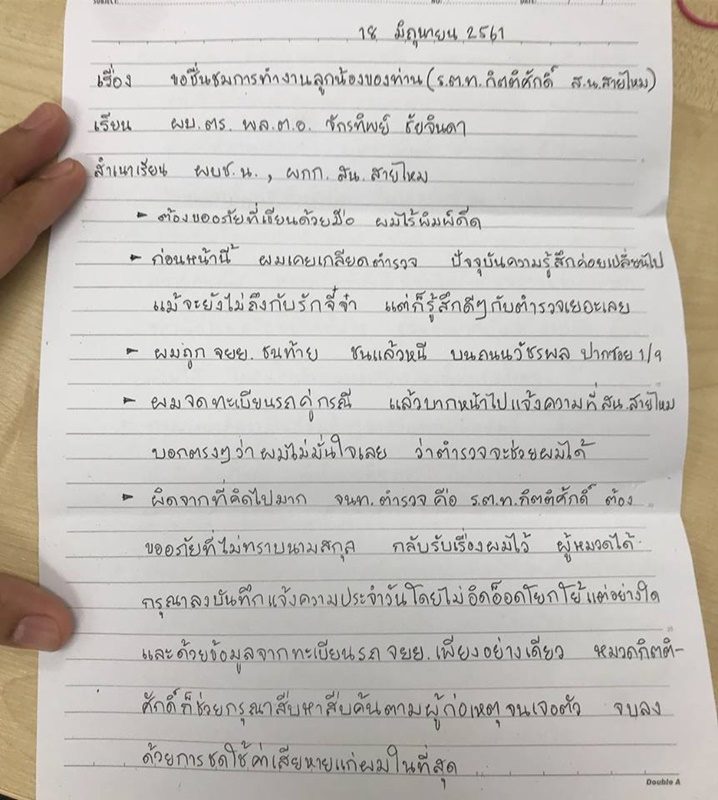 18 มิถุนายน 2561
เรื่อง ขอชื่นชมการทำงานลูกน้องของท่าน (ร.ต.ท.กิตติศักดิ์ ส.น.สายไหม)
เรียน ผบ.ตร. พล.ต.อ. จักรทิพย์ ชัยจินดา
สำเนาเรียน ผบช.น., ผกก. สน.สายไหม
- ต้องขออภัยที่เขียนด้วยมือ ผมไร้พิมพ์ดีด
- ก่อนหน้านี้ ผมเคยเกลียดตำรวจ ปัจจุบันความรู้สึกค่อยเปลี่ยนไป
แม้จะยังไม่ถึงกับรักจี๋จ๋า แต่ก็รู้สึกดีๆกับตำรวจเยอะเลย
- ผมถูก จยย. ชนท้าย ชนแล้วหนี บนถนนวัชรพล ปากซอย 1/9
- ผมจดทะเบียนรถคู่กรณี แล้วบากหน้าไปแจ้งความที่ สน.สายไหม
บอกตรงๆว่า ผมไม่มั่นใจเลย ว่าตำรวจจะช่วยผมได้
- ผิดจากที่คิดไปมาก จนท.ตำรวจ คือ ร.ต.ท.กิตติศักดิ์ ต้อง
ขออภัยที่ไม่ทราบนามสกุล กลับรับเรื่องผมไว้ ผู้หมวดได้
กรุณาลงบันทึกแจ้งความประจำวันโดยไม่อิดอ็อดโยกโย้แต่อย่างใด
และด้วยข้อมูลจากทะเบียนรถ จยย. เพียงอย่างเดียว หมวดกิตติ-
ศักดิ์ก็ช่วยกรุณาสืบหาสืบค้นตามผู้ก่อเหตุจนเจอตัว จบลง
ด้วยการชดใช้ค่าเสียหายแก่ผมในที่สุด
Double A